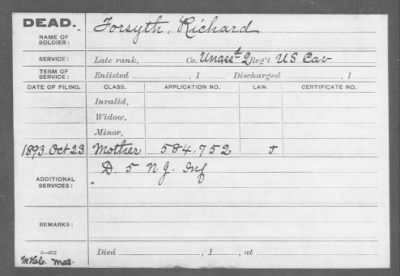 DEAD.
NAME OF SOLDIER: Forsyth, Richard
SERVICE: Late rank, Co. Unas'd 2 Reg't US Cav
TERM OF SERVICE: Enlisted , 1 Discharged , 1
DATE OF FILING. CLASS. APPLICATION NO. LAW. CERTIFICATE NO.
Invalid,
Widow,
Minor,
1893 Oct 23 Mother 584,752
ADDITIONAL SERVICES: D. 5 N.J. Inf
REMARKS:
Died , 1 , at